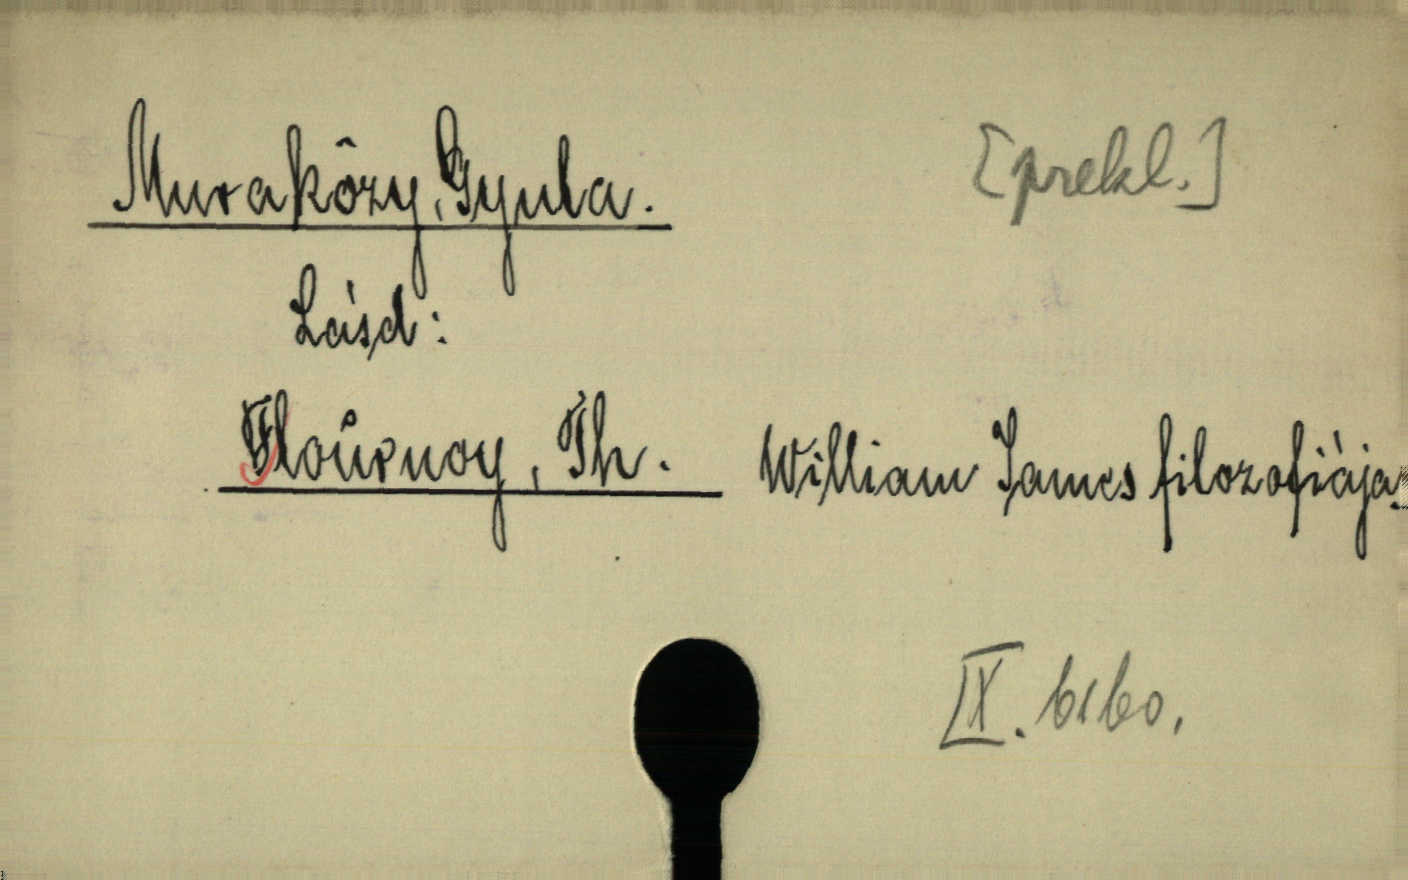 Muraközy, Gyula. [prekl.]
Lásd:
Flournoy, Th. William James filozofiája.
IX. 6160.